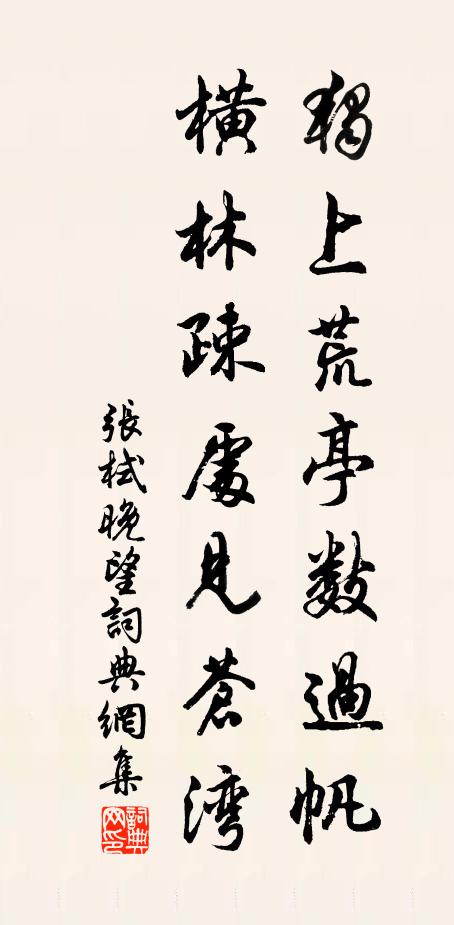 獨上荒亭數過帆
橫林疎處見蒼灣
張栻晚望詞典網集
詞典
网印